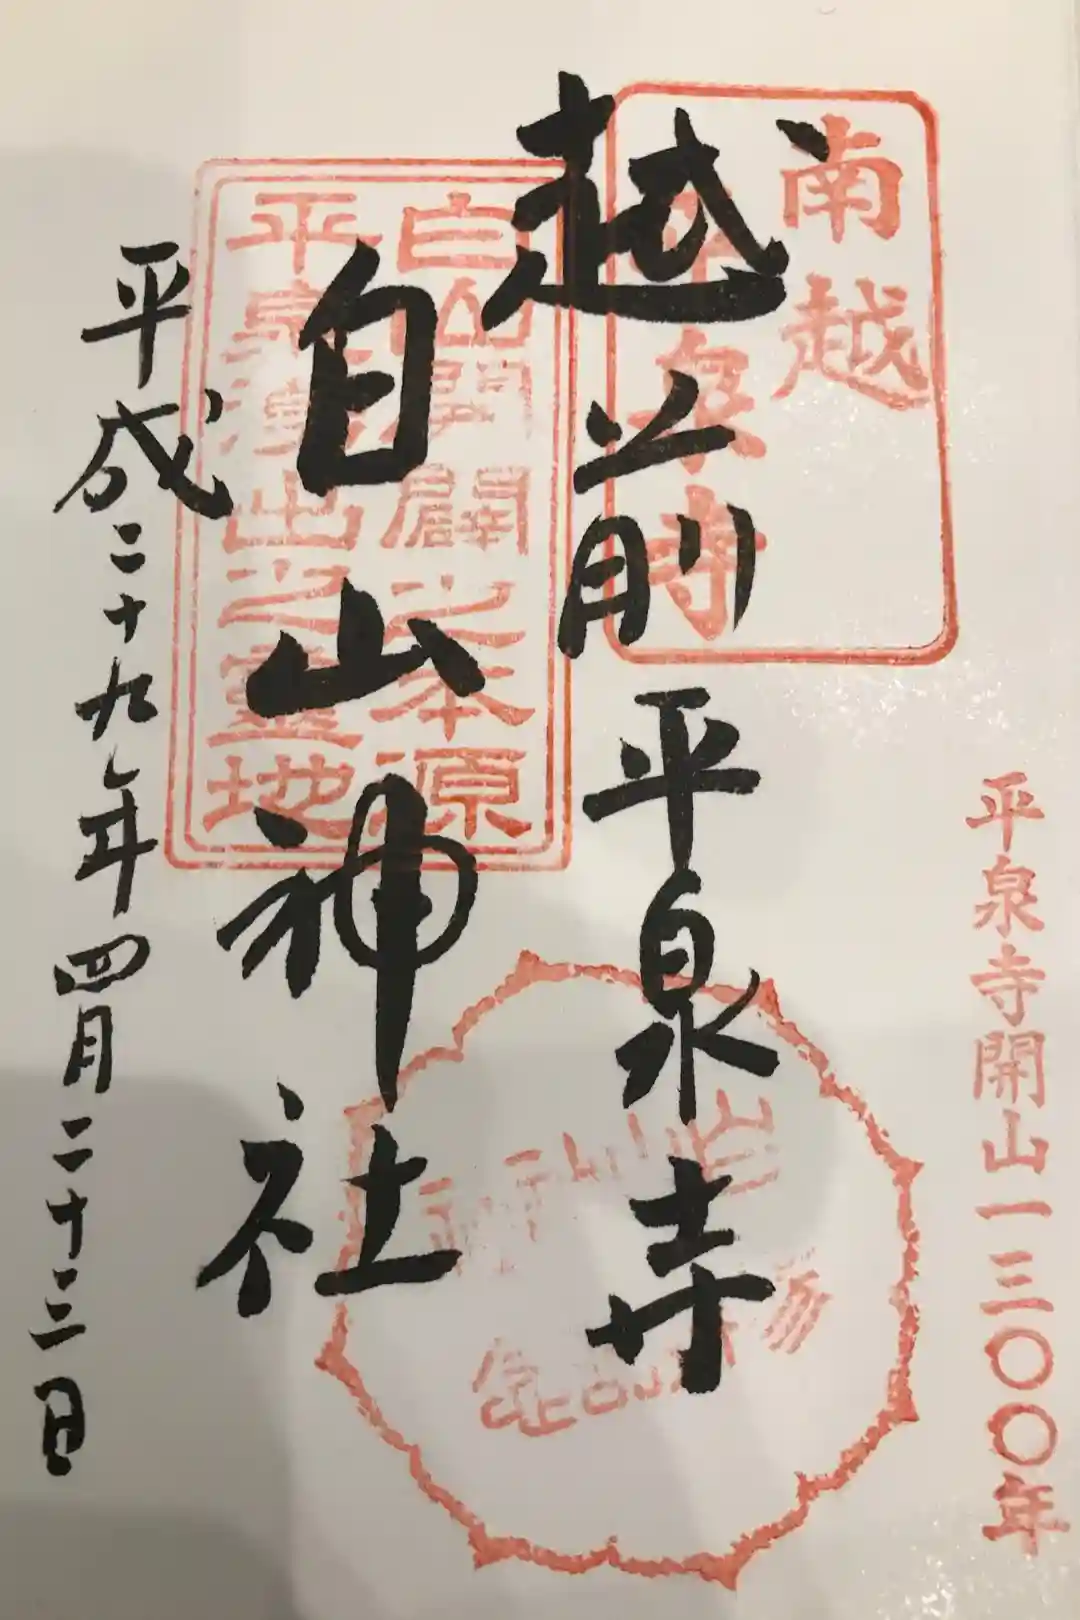 平泉寺開山一三〇〇年
南越
平泉寺
越前平泉寺
白山神社
白山開闢之本原
平泉湧出之靈地
平成二十九年四月二十三日